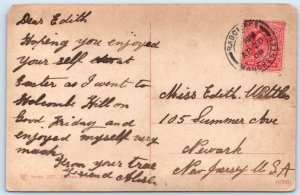 Dear Edith
Hoping you enjoyed
your self at
Easter as I went to
Holcombe Hill on
Good Friday and
enjoyed myself very
much.
From your true
Friend
Miss Edith
105 Summer Ave
Newark
New Jersey U.S.A
RADCLIFFE
MANCHESTER